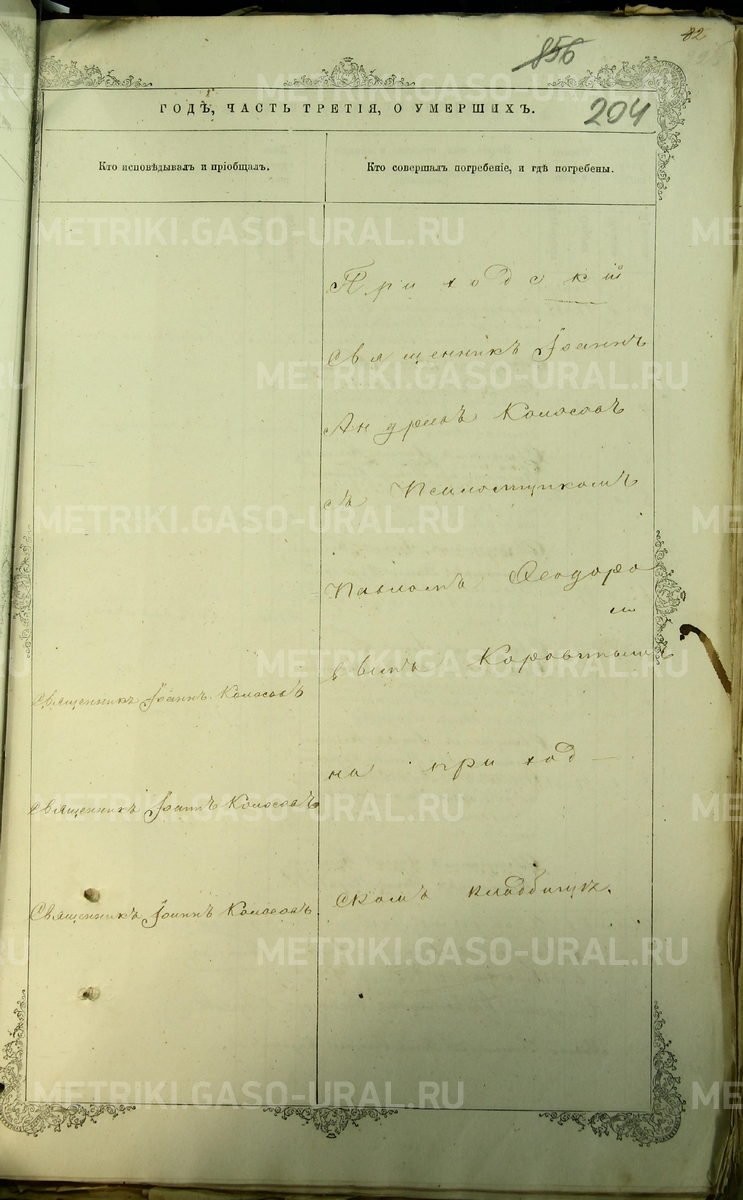 82
856
204
ГОДЪ, ЧАСТЬ ТРЕТІЯ, О УМЕРШИХЪ.
Кто исповѣдывалъ и пріобщалъ.
Кто совершалъ погребеніе, и гдѣ погребены.
Приходскій
Священникъ Іоаннъ
Андреевъ Колосовъ
съ Псаломщикомъ
Павломъ Ѳеодоро
вымъ Коровинымъ
на приход
скомъ кладбищѣ.
Священникъ Іоаннъ Колосовъ
Священникъ Іоаннъ Колосовъ
Священникъ Іоаннъ Колосовъ.
METRIKI.GASO-URAL.RU